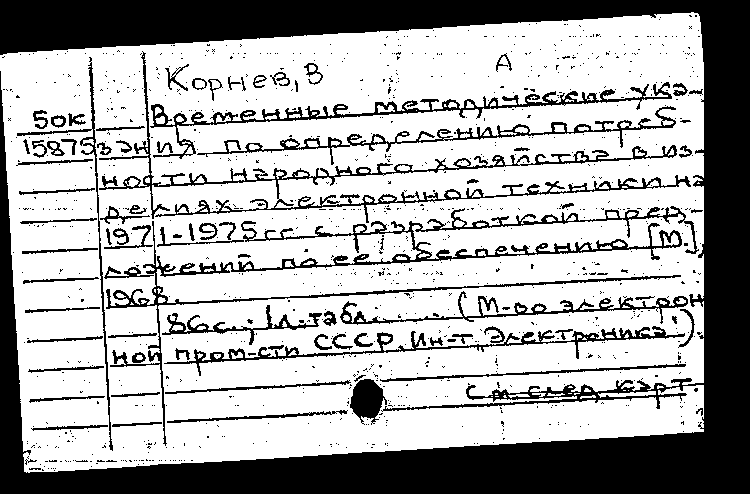 Корнев, В А
50к Временные методические ука-
15875 зания по определению потреб-
ности народного хозяйства в из-
делиях электронной техники на
1971-1975 гг с разработкой пред-
ложений по её обеспечению [М.],
1968.
86с.; 1л.табл. (М-во электрон
ной пром-сти СССР. Ин-т „Электроника").
См. след. карт.